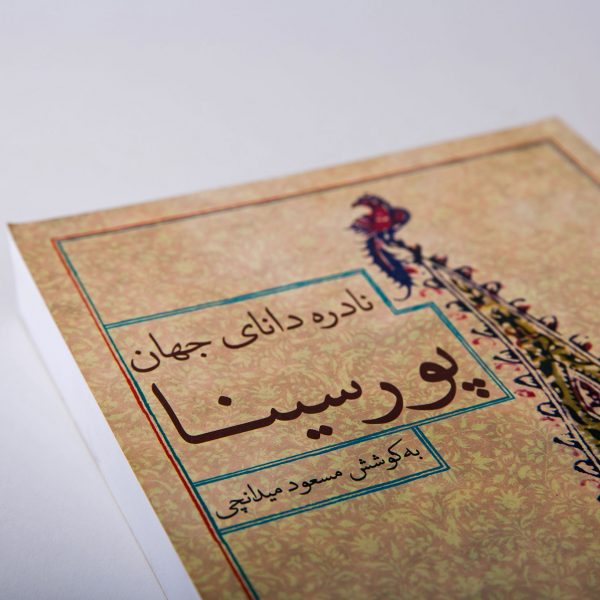 نادره دانای جهان
پورسینا
به کوشش مسعود میدانچی